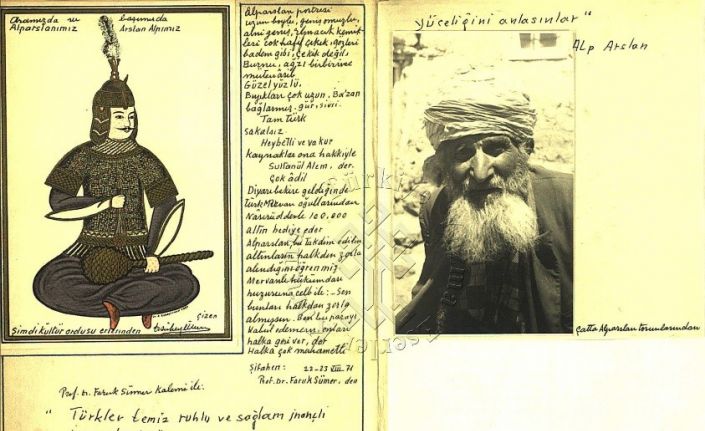 Aramızda ve başımızda
Alparslanımız Arslan Alpımız
Çizen
Şimdi kültür ordusu erlerinden
Alparslan portresi
uzun boylu, geniş omuzlu,
alnı geniş, elmacık kemik-
leri çok hafif çekik, gözleri
badem gibi, çekik değil.
Burnu, ağzı birbirine
mütenasib
Güzel yüzlü.
Bıyıkları çok uzun, Ba'zan
bağlarmış. gür, sivri
Tam Türk
Sakalsız
Heybetli ve vakur
Kaynaklar ona hakkiyle
Sultanül Alem, der.
Çok âdil
Diyarıbekire geldiğinde
Türk Mervan oğullarından
Nâsırüddevle 100.000
altın hediye eder
Alparslan, bu takdim edilen
altınların halkdan zorla
alındığını öğrenmiş
Mervanlı hükümdarı
huzuruna celb ile: - Sen
bunları halkdan zorla
almışsın. Ben bu parayı
kabul edemem. onları
halka geri ver, der
Halka çok merhametli
22-23 VIII. 71
Prof. Dr. Faruk Sümer, den
Prof. Dr. Faruk Sümer Kalemi ile:
" Türkler temiz ruhlu ve sağlam inançlı
yüceliğini anlasınlar "
Alp Arslan
Alparslan torunlarından